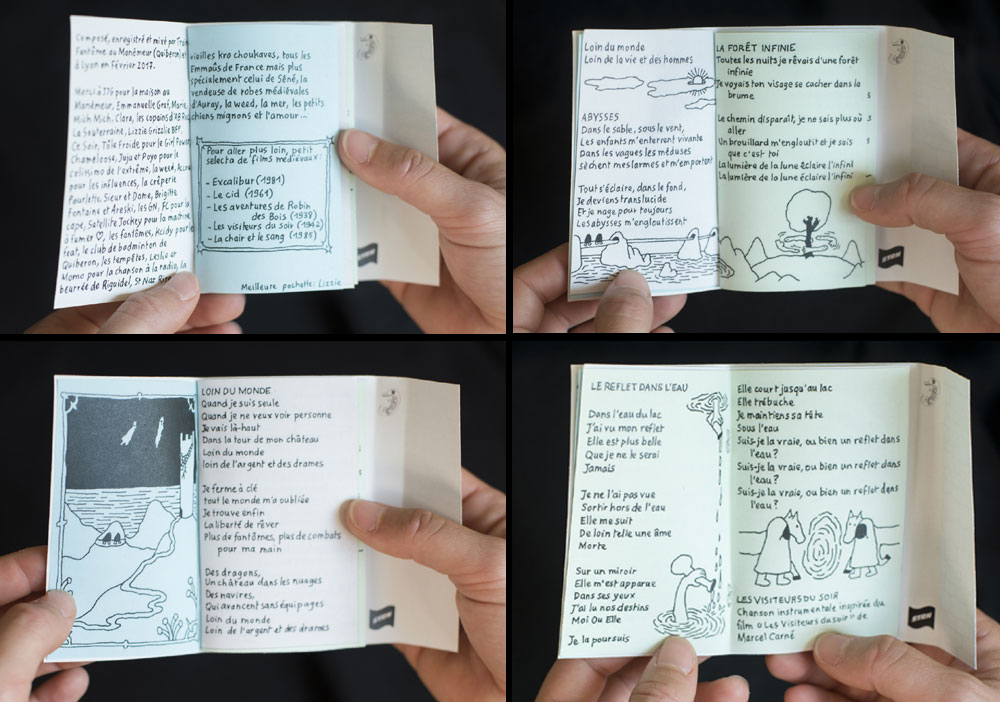 Composé, enregistré et mixé par Trah
Fantôme au Manémeur (Quiberon) et
à Lyon en Février 2017.
Merci à J76 pour la maison au
Manémeur, Emmanuelle Graf, Marie
Mich Mich, Clara, les copains d'AB Re
La Souterraine, Lizzie Grizalie BFF,
Ce Soir, Tûle Froide pour le Girl Power
Chameloose, Juja et Poyo pour le
celisimo de l'extrême, la weed,
pour les influences, la crêperie
Pourlette, Sieur et Dame, Brigitte
Fontaine et Areski, les GN, FC pour la
cape, Satellite Jockey pour la machine
à fumer ♡, les fantômes, Kcidy pour le
teat, le club de badminton de
Quiberon, les tempêtes, Leslie or
Momo pour la chanson à la radio, la
beurrée de Riguidel, St Naz
vieilles kro choukaves, tous les
Emmaüs de France mais plus
spécialement celui de Séné, la
vendeuse de robes médiévales
d'Auray, la weed, la mer, les petits
chiens mignons et l'amour...
Pour aller plus loin, petit
selecta de films médiévaux:
- Excalibur (1981)
- Le cid (1961)
- Les aventures de Robin
des Bois (1938)
- Les visiteurs du soir (1942)
- La chair et le sang (1985)
Meilleure pochette: Lizzie
STEN
Loin du monde
Loin de la vie et des hommes
ABYSSES
Dans le sable, sous le vent,
Les enfants m'enterrent vivante
Dans les vagues les méduses
sèchent mes larmes et m'emportent
Tout s'éclaire, dans le fond,
Je deviens translucide
Et je nage pour toujours
Les abysses m'engloutissent
LA FORÊT INFINIE
Toutes les nuits je rêvais d'une forêt
infinie
Je voyais ton visage se cacher dans la
brume
Le chemin disparaît, je ne sais plus où
aller
Un brouillard m'engloutit et je sais
que c'est toi
La lumière de la lune éclaire l'infini
La lumière de la lune éclaire l'infini
STEN
LOIN DU MONDE
Quand je suis seule
Quand je ne veux voir personne
Je vais là-haut
Dans la tour de mon château
Loin du monde
loin de l'argent et des drames
Je ferme à clé
tout le monde m'a oubliée
Je trouve enfin
La liberté de rêver
Plus de fantômes, plus de combats
pour ma main
Des dragons,
Un château dans les nuages
Des navires,
Qui avancent sans équipages
Loin du monde
Loin de l'argent et des drames
STEN
LE REFLET DANS L'EAU
Dans l'eau du lac
J'ai vu mon reflet
Elle est plus belle
Que je ne le serai
Jamais
Je ne l'ai pas vue
Sortir hors de l'eau
Elle me suit
De loin telle une âme
Morte
Sur un miroir
Elle m'est apparue
Dans ses yeux
J'ai lu nos destins
Moi Ou Elle
Je la poursuis
Elle court jusqu'au lac
Elle trébuche
Je maintiens sa tête
Sous l'eau
Suis-je la vraie, ou bien un reflet dans
l'eau?
Suis-je la vraie, ou bien un reflet dans
l'eau?
Suis-je la vraie, ou bien un reflet dans
l'eau?
LES VISITEURS DU SOIR
Chanson instrumentale inspirée du
film « Les Visiteurs du soir » de
Marcel Carné
STEN